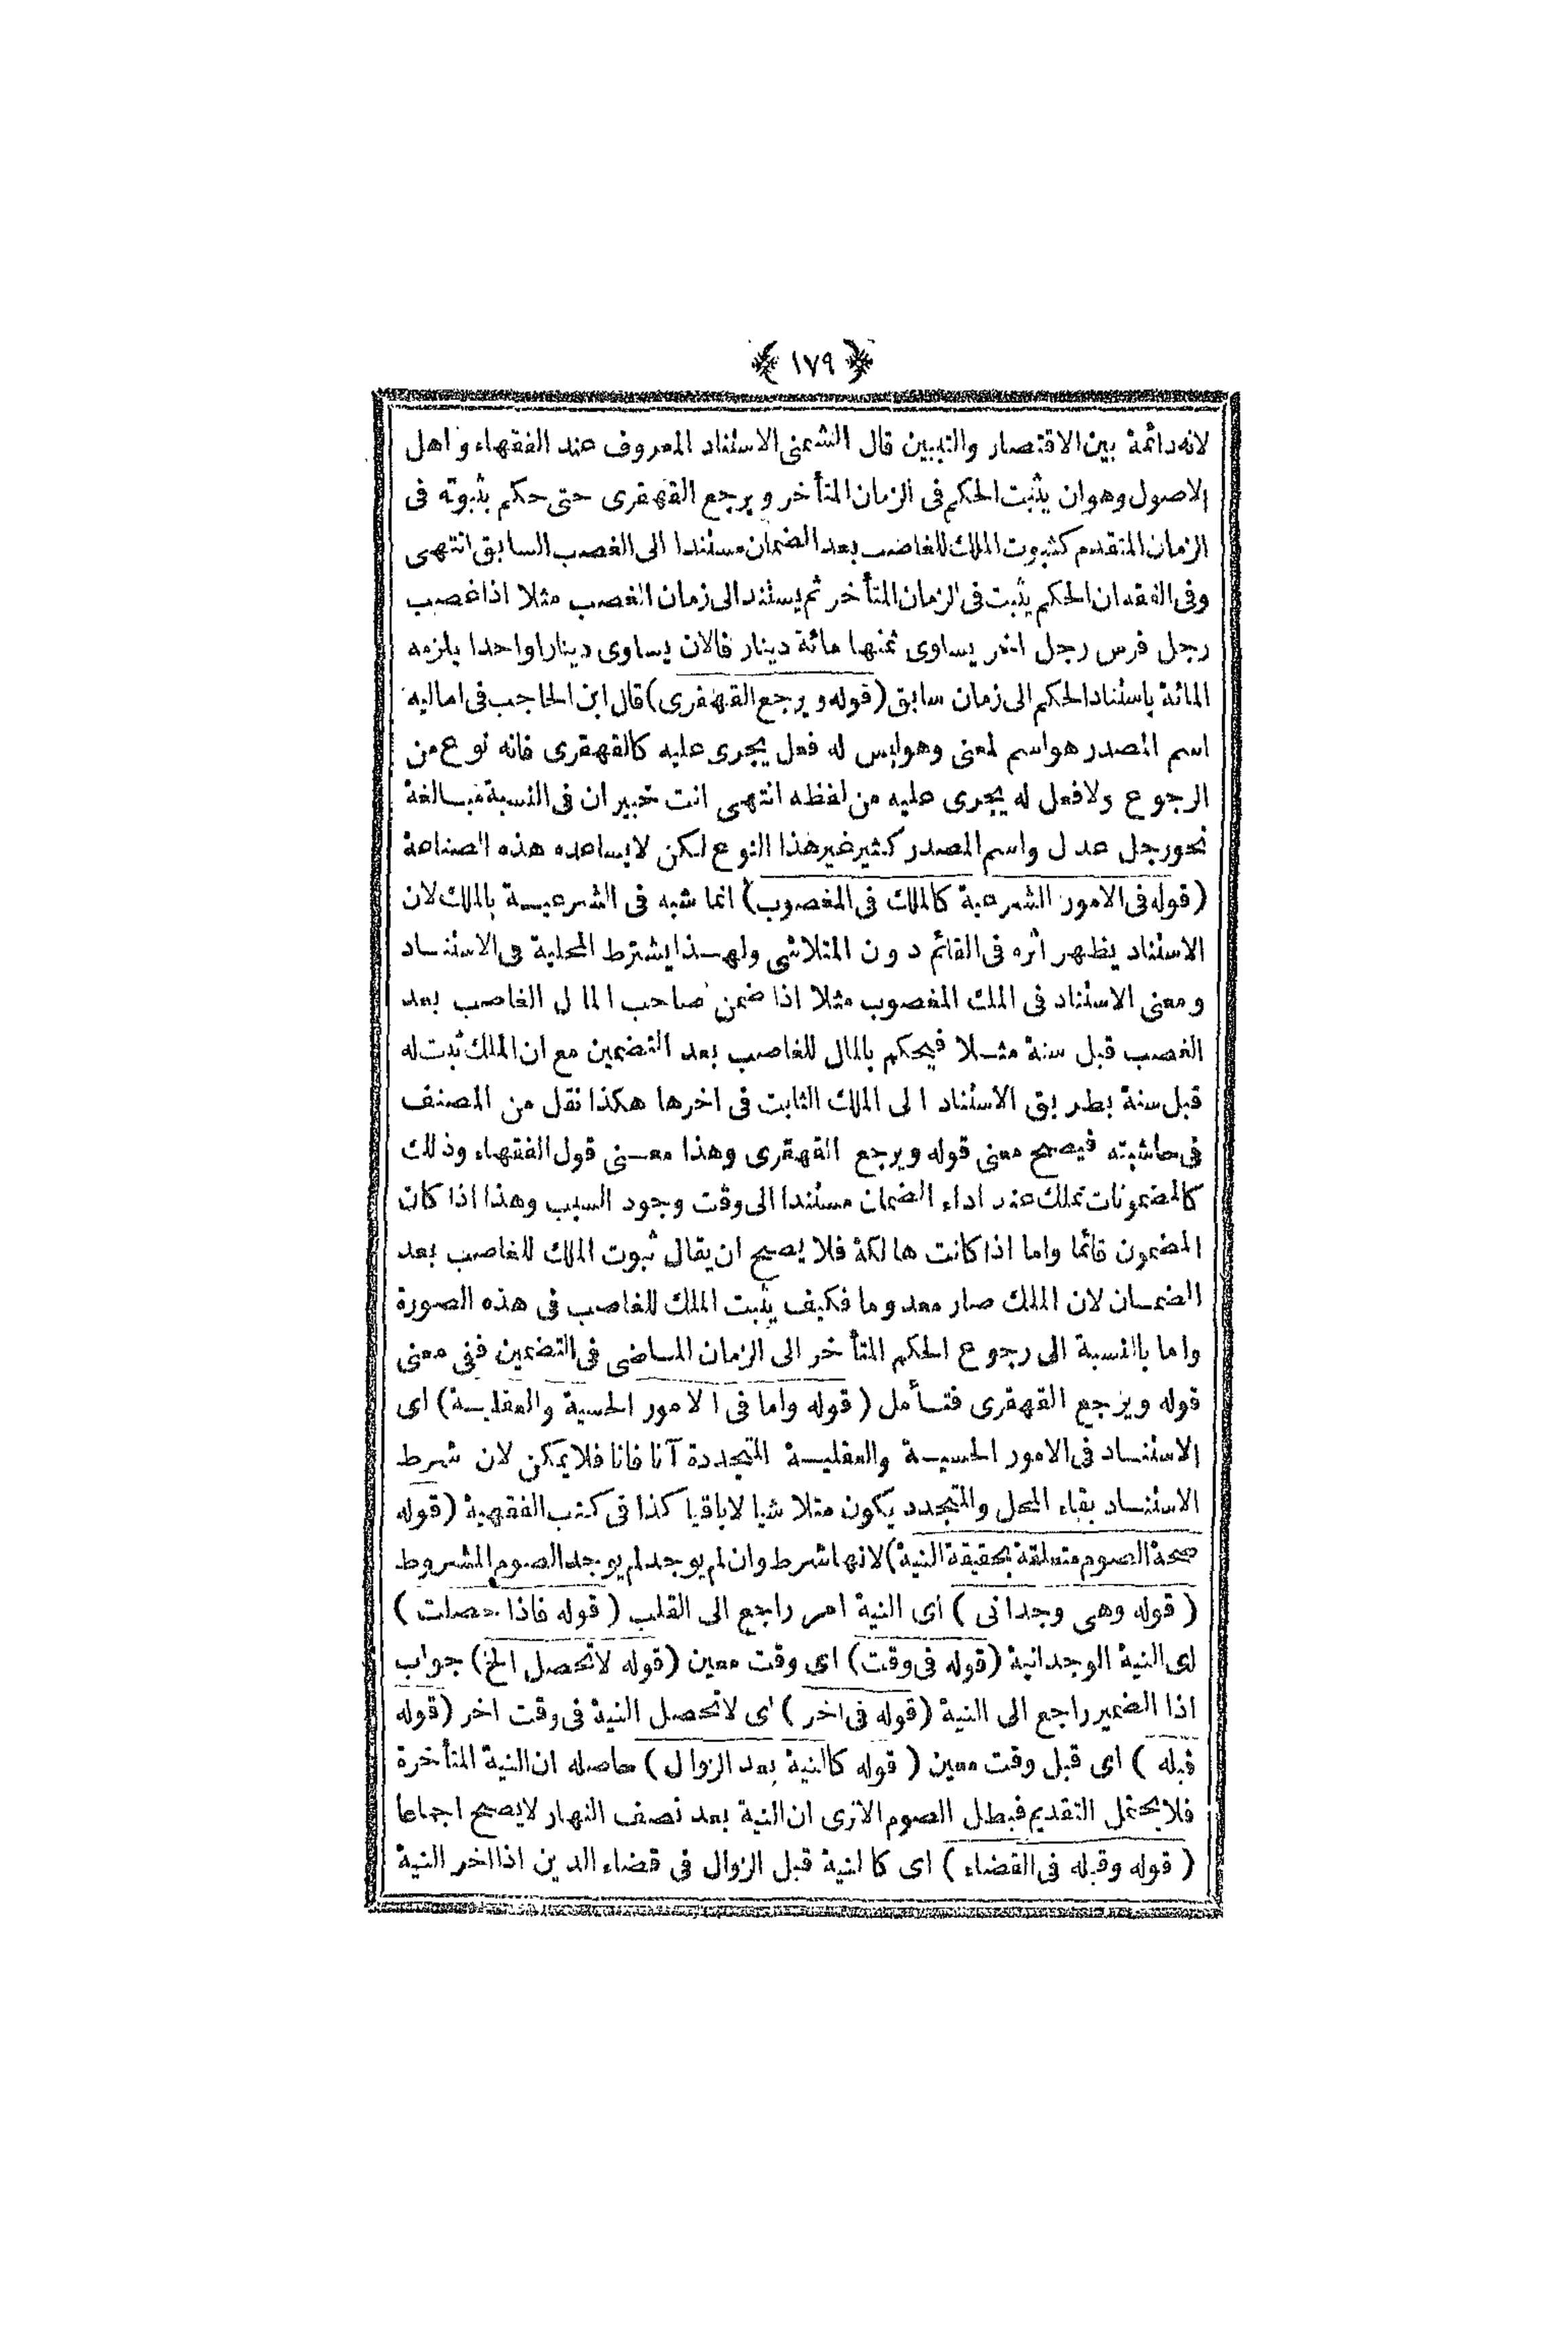 ﴿ ١٧٩ ﴾
لانه دائمة بين الاقتصار والتبيين قال الشمنى الاستناد المعروف عند الفقهاء واهل
الاصول وهو ان يثبت الحكم فى الزمان المتأخر ويرجع القهقرى حتى حكم بثبوته فى
الزمان المتقدم كثبوت الملك للغاصب بعد الضمان مستندا الى الغصب السابق انتهى
وفى الفقه ان الحكم يثبت فى الزمان المتأخر ثم يستند الى زمان الغصب مثلا اذا غصب
رجل فرس رجل اخر يساوى ثمنها مائة دينار فالان يساوى دينارا واحدا يلزمه
المائة باستناد الحكم الى زمان سابق (قوله ويرجع القهقرى) قال ابن الحاجب فى اماليه
اسم المصدر هو اسم لمعنى وهو ليس له فعل يجرى عليه كالقهقرى فانه نوع من
الرجوع ولا فعل له يجرى عليه من لفظه انتهى انت خبير ان فى النسبة مبالغة
نحو رجل عدل واسم المصدر كثير غير هذا النوع لكن لا يساعده هذه الصناعة
(قوله فى الامور الشرعية كالملك فى المغصوب) انما شبه فى الشرعيـة بالملك لان
الاستناد يظهر اثره فى القائم دون المتلاشى ولهـذا يشترط المحلية فى الاستنـاد
ومعنى الاستناد فى الملك المغصوب مثلا اذا ضمن صاحب المال الغاصب بعد
الغصب قبل سنة مثـلا فيحكم بالمال للغاصب بعد التضمين مع ان الملك ثبت له
قبل سنة بطريق الاستناد الى الملك الثابت فى اخرها هكذا نقل من المصنف
فى حاشيته فيصح معنى قوله ويرجع القهقرى وهذا معـنى قول الفقهاء وذلك
كالمضمونات تملك عند اداء الضمان مستندا الى وقت وجود السبب وهذا اذا كان
المضمون قائما واما اذا كانت هالكة فلا يصح ان يقال ثبوت الملك للغاصب بعد
الضمـان لان الملك صار معدوما فكيف يثبت الملك للغاصب فى هذه الصورة
واما بالنسبة الى رجوع الحكم المتأخر الى الزمان المـاضى فى التضمين ففى معنى
قوله ويرجع القهقرى فتـأمل (قوله واما فى الامور الحسية والعقليـة) اى
الاستنـاد فى الامور الحسيـة والعقليـة المتجددة آنا فانا فلا يمكن لان شرط
الاستنـاد بقاء المحل والمتجدد يكون مثلا شيا لا باقيا كذا فى كتب الفقهية (قوله
صحة الصوم متعلقة بحقيقة النية) لانها شرط وان لم يوجد لم يوجد الصوم المشروط
(قوله وهى وجدانى) اى النية امر راجع الى القلب (قوله فاذا حصلت)
اى النية الوجدانية (قوله فى وقت) اى وقت معين (قوله لا تحصل الخ) جواب
اذا الضمير راجع الى النية (قوله فى اخر) اى لا تحصل النية فى وقت اخر (قوله
قبله) اى قبل وقت معين (قوله كالنية بعد الزوال) حاصله ان النية المتأخرة
فلا يحتمل التقديم فبطل الصوم الا ترى ان النية بعد نصف النهار لا يصح اجماعا
(قوله وقبله فى القضاء) اى كالنية قبل الزوال فى قضاء الدين اذا اخر النية